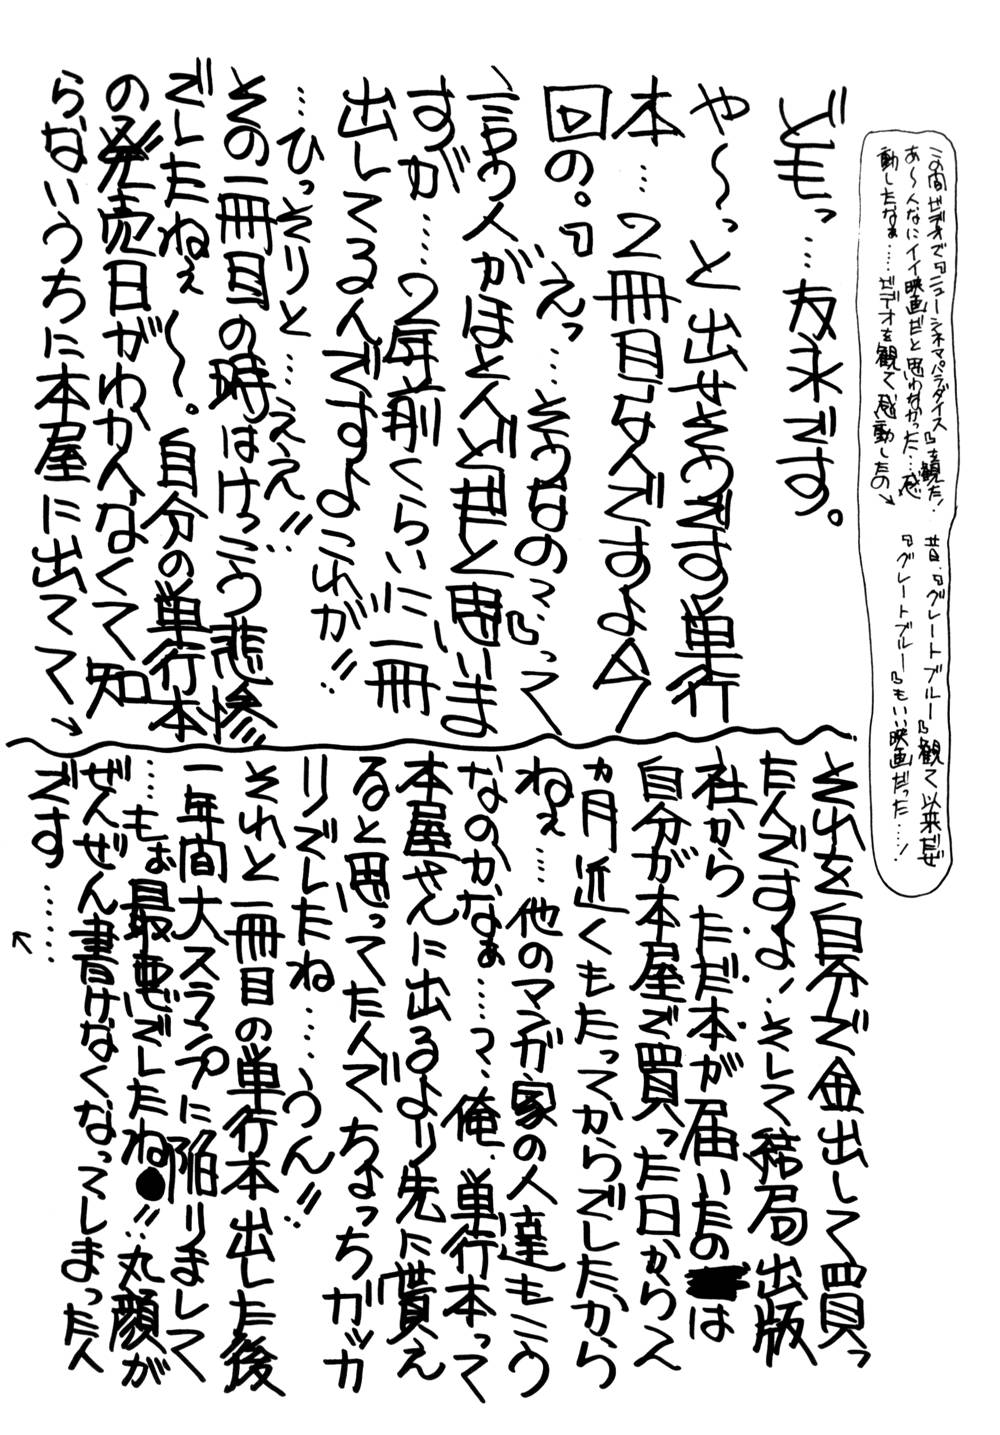 この間ビデオで『ニューシネマパラダイス』を観た!
あ～んなにイイ映画だと思わなかった…感
動したなぁ……ビデオを観て感動したの→
昔、『グレートブルー』観て以来だぜ
『グレートブルー』もいい映画だった……!
どもっ…友永です。
や～っと出せそうです単行
本…2冊目なんですよ今
回の。『えっ…そうなの?』って
言う人がほとんどだと思いま
すが……2年前くらいに一冊
出してるんですよこれが!!
…ひっそりと……ええ!!
その一冊目の時はけっこう悲惨
でしたねぇ～。自分の単行本
の発売日がわかんなくて知
らないうちに本屋に出てて→
それを自分で金出して買っ
たんですよ、そして結局出版
社からただ本が届いたのは
自分が本屋で買った日から一
ヵ月近くもたってからでしたから
ねぇ……他のマンガ家の人達もこう
なのかなぁ……?、俺、単行本って
本屋さんに出るより先に貰え
ると思ってたんでちょっちガッカ
リでしたね……うん!!
それと一冊目の単行本出した後
一年間大スランプに陥りまして
…もぉ最悪でしたね!!丸顔が
ぜんぜん書けなくなってしまったん
です……
↑